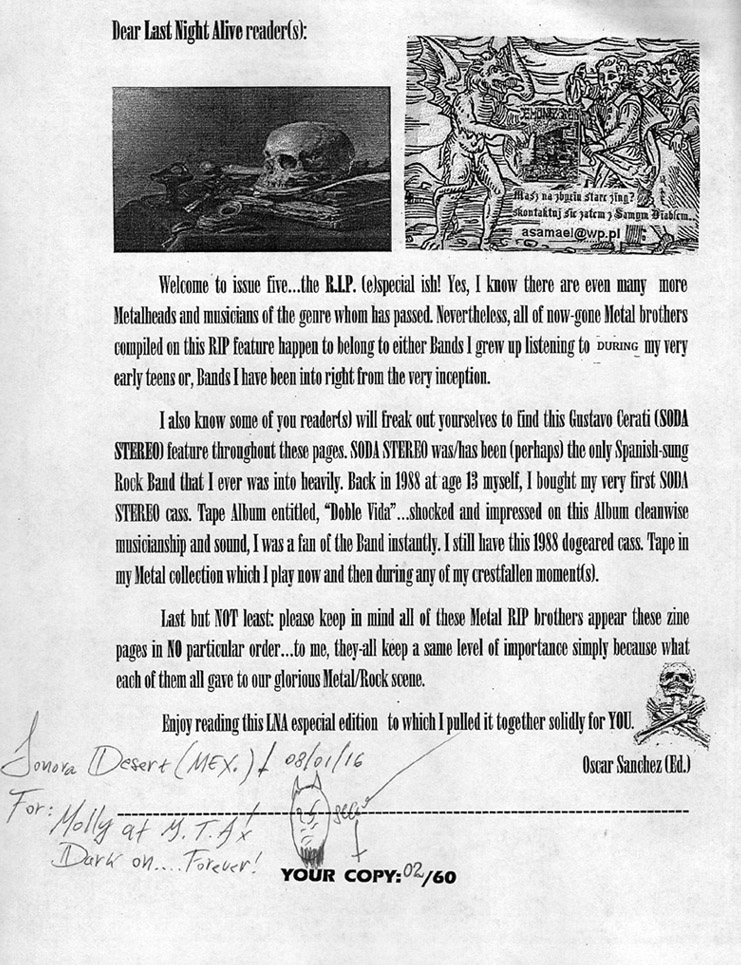 Dear Last Night Alive reader(s):
Masz na zbyciu stare ziny?
skontaktuj sie zatem z Samym Diablem...
asamael@wp.pl
Welcome to issue five...the R.I.P. (e)special ish! Yes, I know there are even many more
Metalheads and musicians of the genre whom has passed. Nevertheless, all of now-gone Metal brothers
compiled on this RIP feature happen to belong to either Bands I grew up listening to DURING my very
early teens or, Bands I have been into right from the very inception.
I also know some of you reader(s) will freak out yourselves to find this Gustavo Cerati (SODA
STEREO) feature throughout these pages. SODA STEREO was/has been (perhaps) the only Spanish-sung
Rock Band that I ever was into heavily. Back in 1988 at age 13 myself, I bought my very first SODA
STEREO cass. Tape Album entitled, “Doble Vida”...shocked and impressed on this Album cleanwise
musicianship and sound, I was a fan of the Band instantly. I still have this 1988 dogeared cass. Tape in
my Metal collection which I play now and then during any of my crestfallen moment(s).
Last but NOT least: please keep in mind all of these Metal RIP brothers appear these zine
pages in NO particular order...to me, they-all keep a same level of importance simply because what
each of them all gave to our glorious Metal/Rock scene.
Enjoy reading this LNA especial edition to which I pulled it together solidly for YOU.
Oscar Sanchez (Ed.)
Sonora Desert (MEX.) 08/01/16
For: Molly at M.T.A!
Dark on.... Forever!
YOUR COPY: 02/60